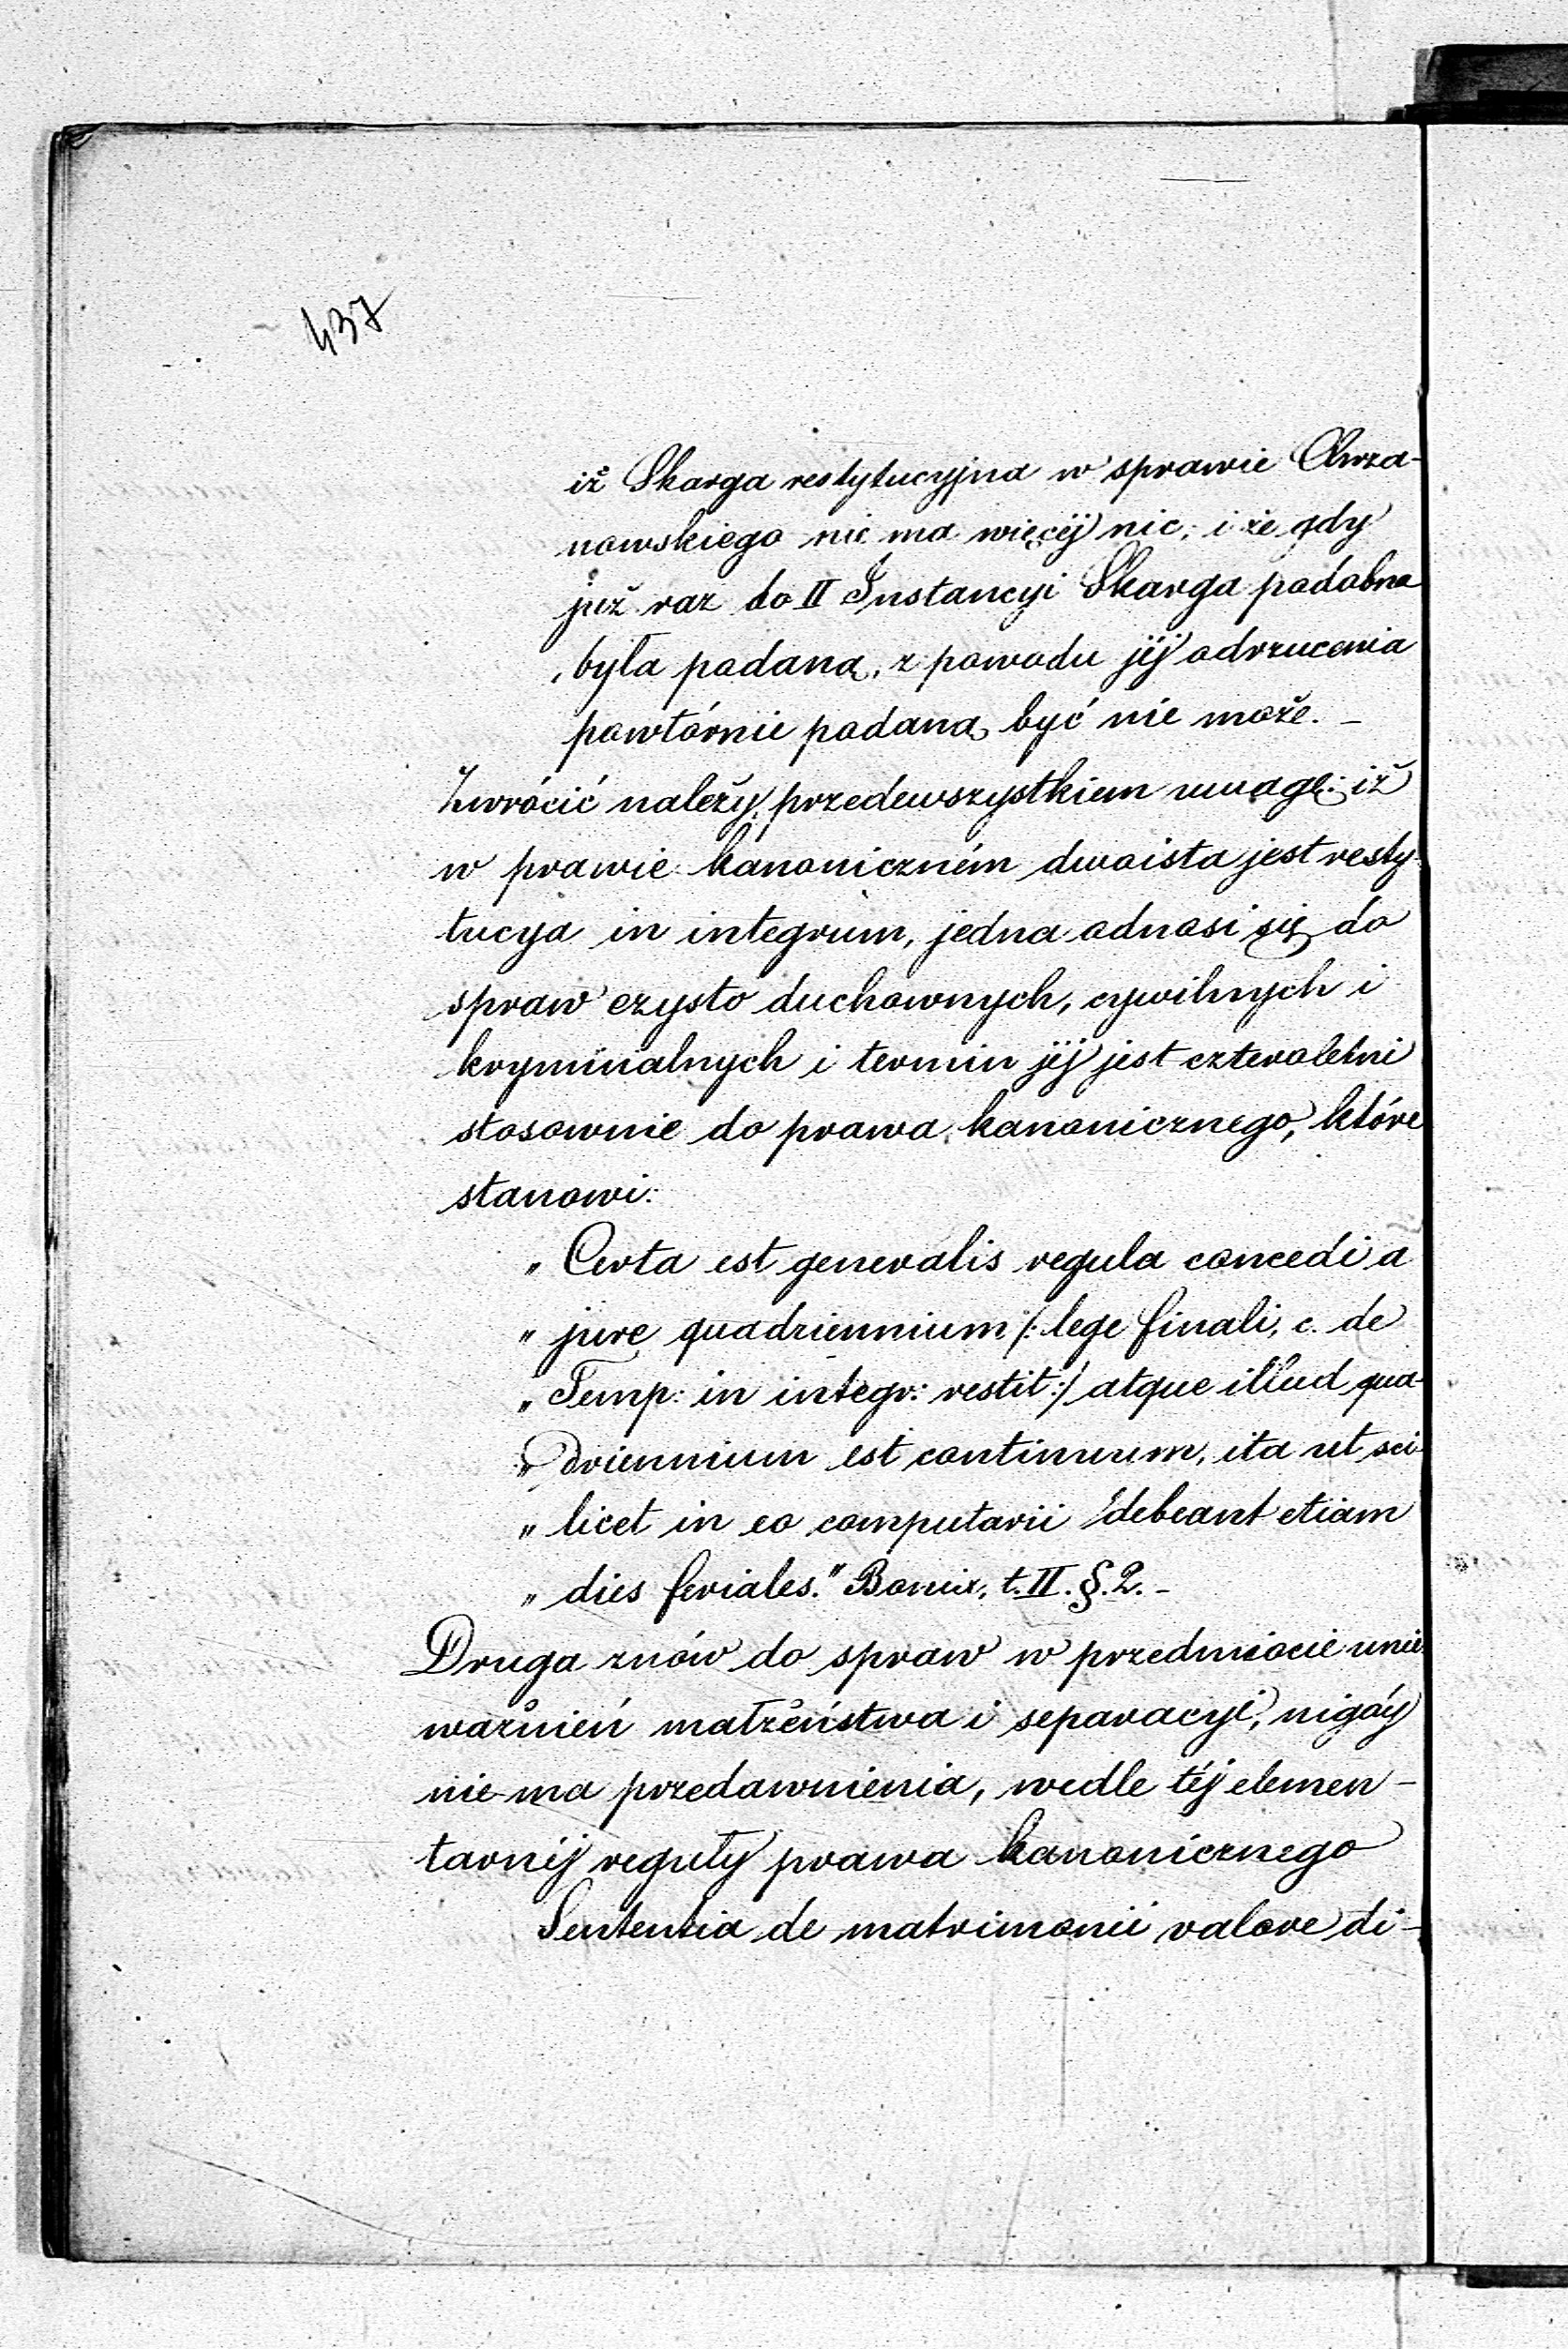 437
iż Skarga restytucyjna w sprawie Chrza-
nowskiego nie ma więcéj nic, i że gdy
już raz do II Instancyi Skarga podobna
była podaną, z powodu jéj odrzucenia
powtórnie podaną być nie może. -
Zwrócić należy przedewszystkiem uwagę: iż
w prawie kanoniczném dwoista jest resty-
tucya in integrum, jedna odnosi się do
spraw czysto duchownych, cywilnych i
kryminalnych i termin jéj jest czteroletni
stosownie do prawa kanonicznego, które
stanowi:
„ Certa est generalis regula concedi a
„ jure quadriennium /: lege finali, c. de
„ Temp: in integr: restit:/ atque illud qua-
„ driennium est continuum, ita ut sci-
„ licet in eo computarii debeant etiam
„ dies feriales." Bouix, t. II. §. 2. -
Druga znów do spraw w przedmiocie unie-
ważnień małżeństwa i separacyi, nigdy
nie ma przedawnienia, wedle téj elemen-
tarnéj reguły prawa kanonicznego
Sententia de matrimonii valore di-